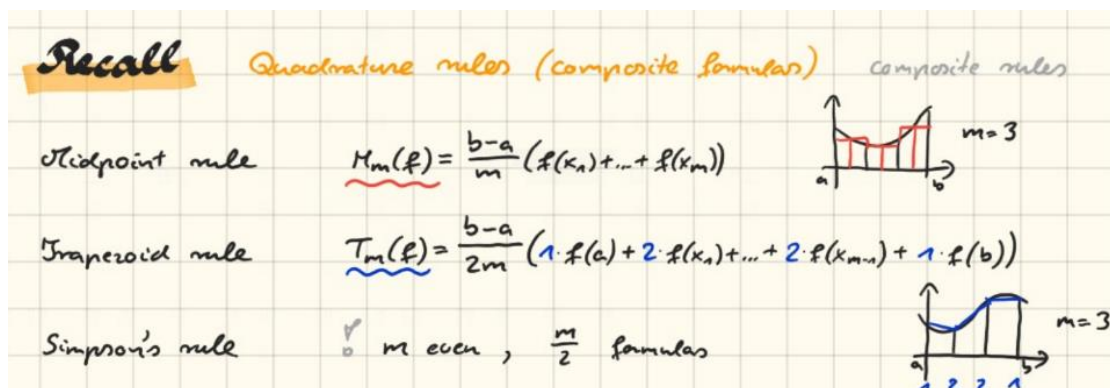 Recall Quadrature rules (composite formulas) composite rules
m=3
a b
Midpoint rule M_m(f) = \frac{b-a}{m} (f(x_1)+...+ f(x_m))
Trapezoid rule T_m(f) = \frac{b-a}{2m} (1·f(a) + 2·f(x_1)+...+ 2·f(x_{m-1}) + 1·f(b))
Simpson's rule ! m even, \frac{m}{2} formulas
m=3
a b
1 2 2 1